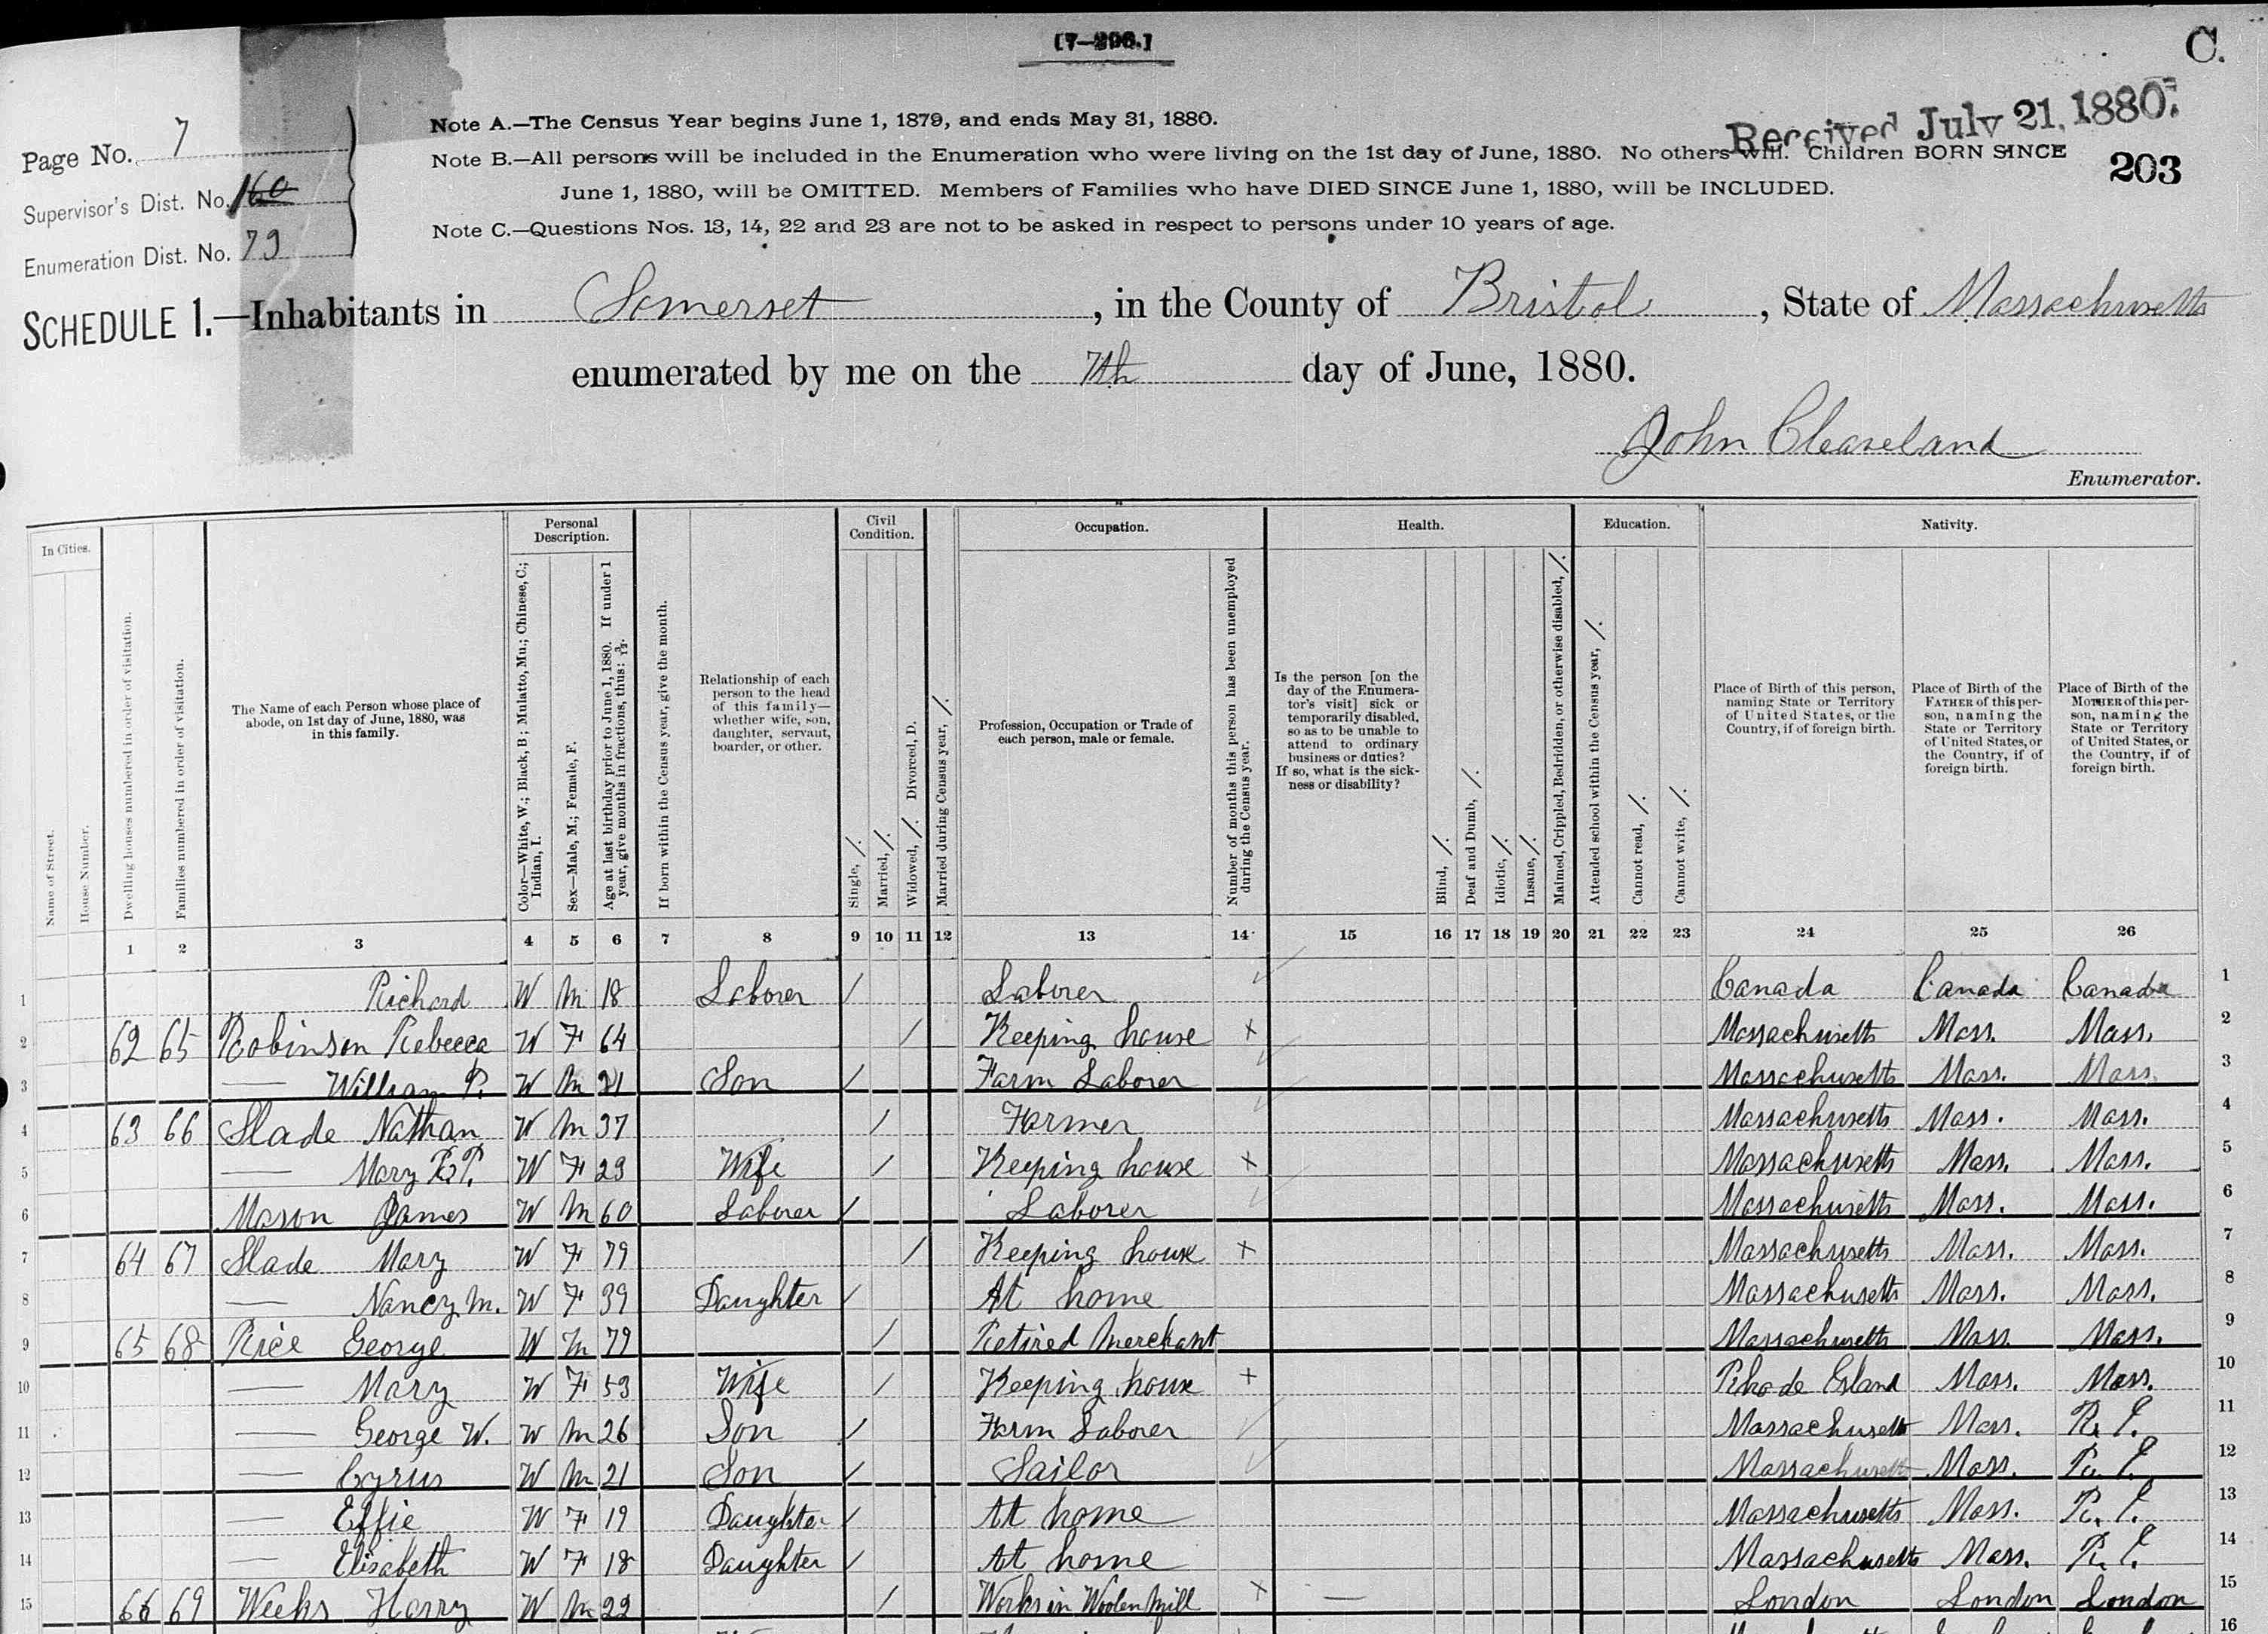 [7-296.]
C.
Page No. 7
Supervisor's Dist. No. 160
Enumeration Dist. No. 79
Note A.—The Census Year begins June 1, 1879, and ends May 31, 1880.
Note B.—All persons will be included in the Enumeration who were living on the 1st day of June, 1880. No others will. Children BORN SINCE
June 1, 1880, will be OMITTED. Members of Families who have DIED SINCE June 1, 1880, will be INCLUDED.
Note C.—Questions Nos. 13, 14, 22 and 23 are not to be asked in respect to persons under 10 years of age.
Received July 21, 1880.
203
SCHEDULE 1.—Inhabitants in Somerset, in the County of Bristol, State of Massachusetts
enumerated by me on the 7th day of June, 1880.
John Cleaveland
Enumerator.
In Cities.
Name of Street.
House Number.
Dwelling houses numbered in order of visitation.
Families numbered in order of visitation.
The Name of each Person whose place of abode, on 1st day of June, 1880, was in this family.
Personal Description.
Color—White, W.; Black, B; Mulatto, Mu.; Chinese, C.; Indian, I.
Sex—Male, M.; Female, F.
Age at last birthday prior to June 1, 1880. If under 1 year, give months in fractions, thus: 3/12.
If born within the Census year, give the month.
Relationship of each person to the head of this family—whether wife, son, daughter, servant, boarder, or other.
Civil Condition.
Single, /.
Married, /.
Widowed, /. Divorced, D.
Married during Census year, /.
Occupation.
Profession, Occupation or Trade of each person, male or female.
Number of months this person has been unemployed during the Census year.
Health.
Is the person [on the day of the Enumerator's visit] sick or temporarily disabled, so as to be unable to attend to ordinary business or duties? If so, what is the sickness or disability?
Blind, /.
Deaf and Dumb, /.
Idiotic, /.
Insane, /.
Maimed, Crippled, Bedridden, or otherwise disabled, /.
Education.
Attended school within the Census year, /.
Cannot read, /.
Cannot write, /.
Nativity.
Place of Birth of this person, naming State or Territory of United States, or the Country, if of foreign birth.
Place of Birth of the FATHER of this person, naming the State or Territory of United States, or the Country, if of foreign birth.
Place of Birth of the MOTHER of this person, naming the State or Territory of United States, or the Country, if of foreign birth.
1 2 3 4 5 6 7 8 9 10 11 12 13 14 15 16 17 18 19 20 21 22 23 24 25 26
1 Richard W M 18 Laborer / Laborer Canada Canada Canada 1
2 62 65 Robinson Rebecca W F 64 / Keeping house X Massachusetts Mass. Mass. 2
3 — William P. W M 21 Son / Farm Laborer Massachusetts Mass. Mass. 3
4 63 66 Slade Nathan W M 37 / Farmer Massachusetts Mass. Mass. 4
5 — Mary R.P. W F 23 Wife / Keeping house X Massachusetts Mass. Mass. 5
6 Mason James W M 60 Laborer / Laborer Massachusetts Mass. Mass. 6
7 64 67 Slade Mary W F 79 / Keeping house X Massachusetts Mass. Mass. 7
8 — Nancy M. W F 39 Daughter / At home Massachusetts Mass. Mass. 8
9 65 68 Rice George W M 79 / Retired Merchant Massachusetts Mass. Mass. 9
10 — Mary W F 53 Wife / Keeping house X Rhode Island Mass. Mass. 10
11 — George W. W M 26 Son / Farm Laborer Massachusetts Mass. R. I. 11
12 — Cyrus W M 21 Son / Sailor Massachusetts Mass. R. I. 12
13 — Effie W F 19 Daughter / At home Massachusetts Mass. R. I. 13
14 — Elisabeth W F 18 Daughter / At home Massachusetts Mass. R. I. 14
15 66 69 Weeks Harry W M 22 / Works in Woolen Mill X — London London London 15
16